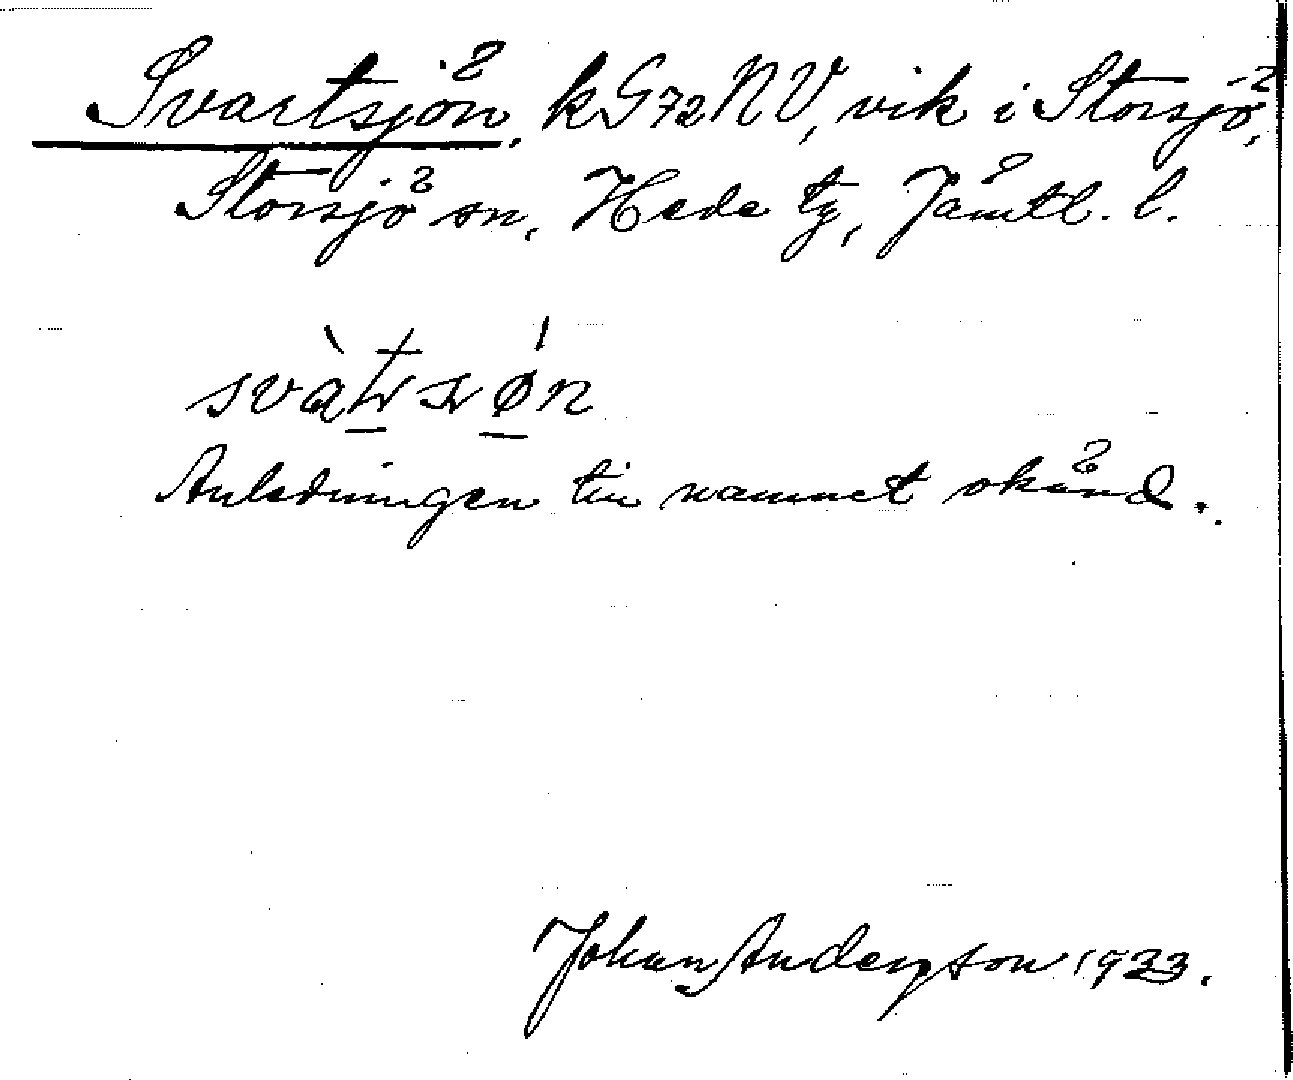 Svartsjön, k G72NV, vik i Storsjö,
Storsjö sn, Hede tg, Jämtl. l.
Anledningen till namnet okänd.
Johan Anderson 1933.